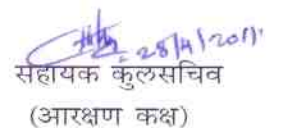 28/4/2011.
सहायक कुलसचिव
(आरक्षण कक्ष)